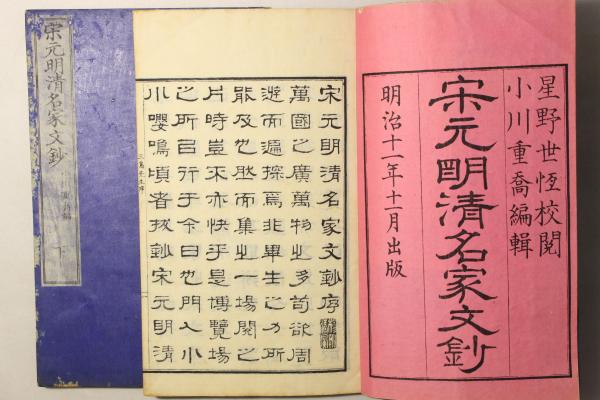 星野世恆校閱
小川重喬編輯
宋元明清名家文鈔
明治十一年十一月出版
宋元明清名家文鈔序
萬國之廣萬物之多苟欲周
遊而遍探焉非畢生之力所
能及也然而集之一場閱之
片時豈不亦快乎是博覽場
之所㠯行于今日也門人小
川嚶鳴頃者拔鈔宋元明清
宋元明清名家文鈔
下